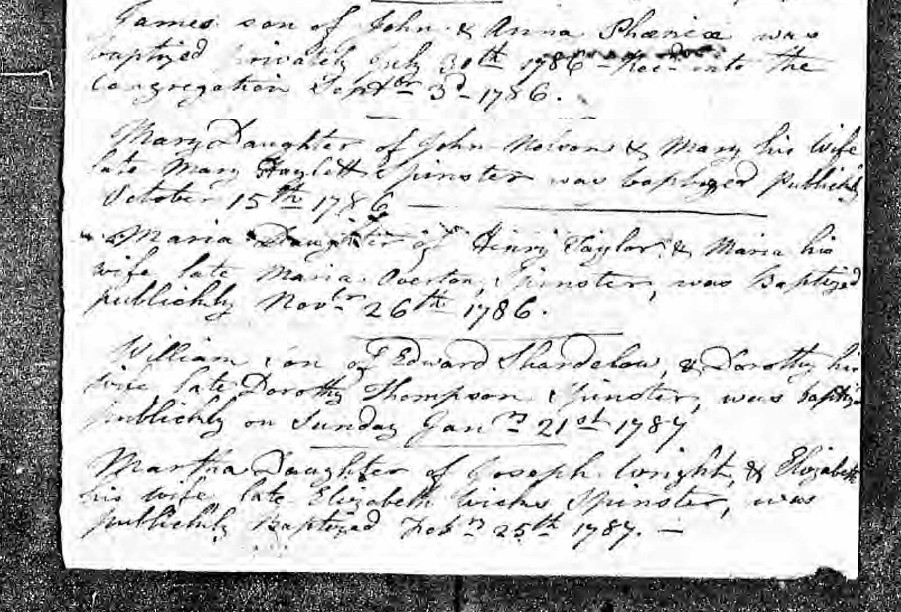 James son of John & Anna Phœnix was
baptized privately July 30th 1786 – Rec. into the
Congregation Septbr 3d 1786.
Mary Daughter of John Nelson & Mary his Wife
late Mary Haylett Spinster was baptized publickly
October 15th 1786
Maria Daughter of Henry Taylor, & Maria his
wife, late Maria Overton, Spinster, was Baptized
publickly Novbr 26th 1786.
William son of Edward Shardelow, & Dorothy his
wife, late Dorothy Thompson Spinster, was baptiz
publickly on Sunday Jany 21st 1787
Martha Daughter of Joseph Wright, & Elizabeth
his wife, late Elizabeth Spinster, was
publickly Baptized Feby 25th 1787. –